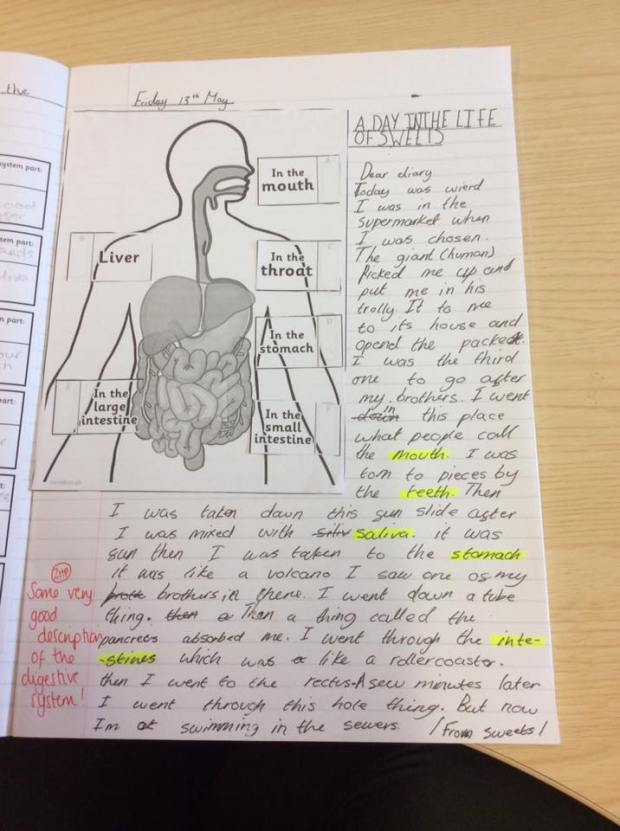 the
ystem part:
tem part:
n part:
art:
Friday 13th May
In the
mouth
Liver
In the
throat
In the
stomach
In the
large
intestine
In the
small
intestine
A DAY IN THE LIFE
OF SWEETS
Dear diary
Today was wierd
I was in the
supermarket when
I was chosen.
The giant (human)
Picked me up and
put me in his
trolly. It to me
to its house and
opend the packet.
I was the third
one to go after
my brothers. I went
down in this place
what people call
the mouth. I was
torn to pieces by
the teeth. Then
I was taken down this fun slide after
I was mixed with saliva. it was
fun then I was taken to the stomach
it was like a volcano I saw one of my
broth brothers in there. I went down a tube
thing. then a Then a thing called the
pancrees absorbed me. I went through the inte-
-stines which was a like a rollercoaster.
then I went to the rectus. A few minutes later
I went through this hole thing. But now
Im at swimming in the sewers /From sweets/
2HP
Some very
good
description
of the
digestive
system!